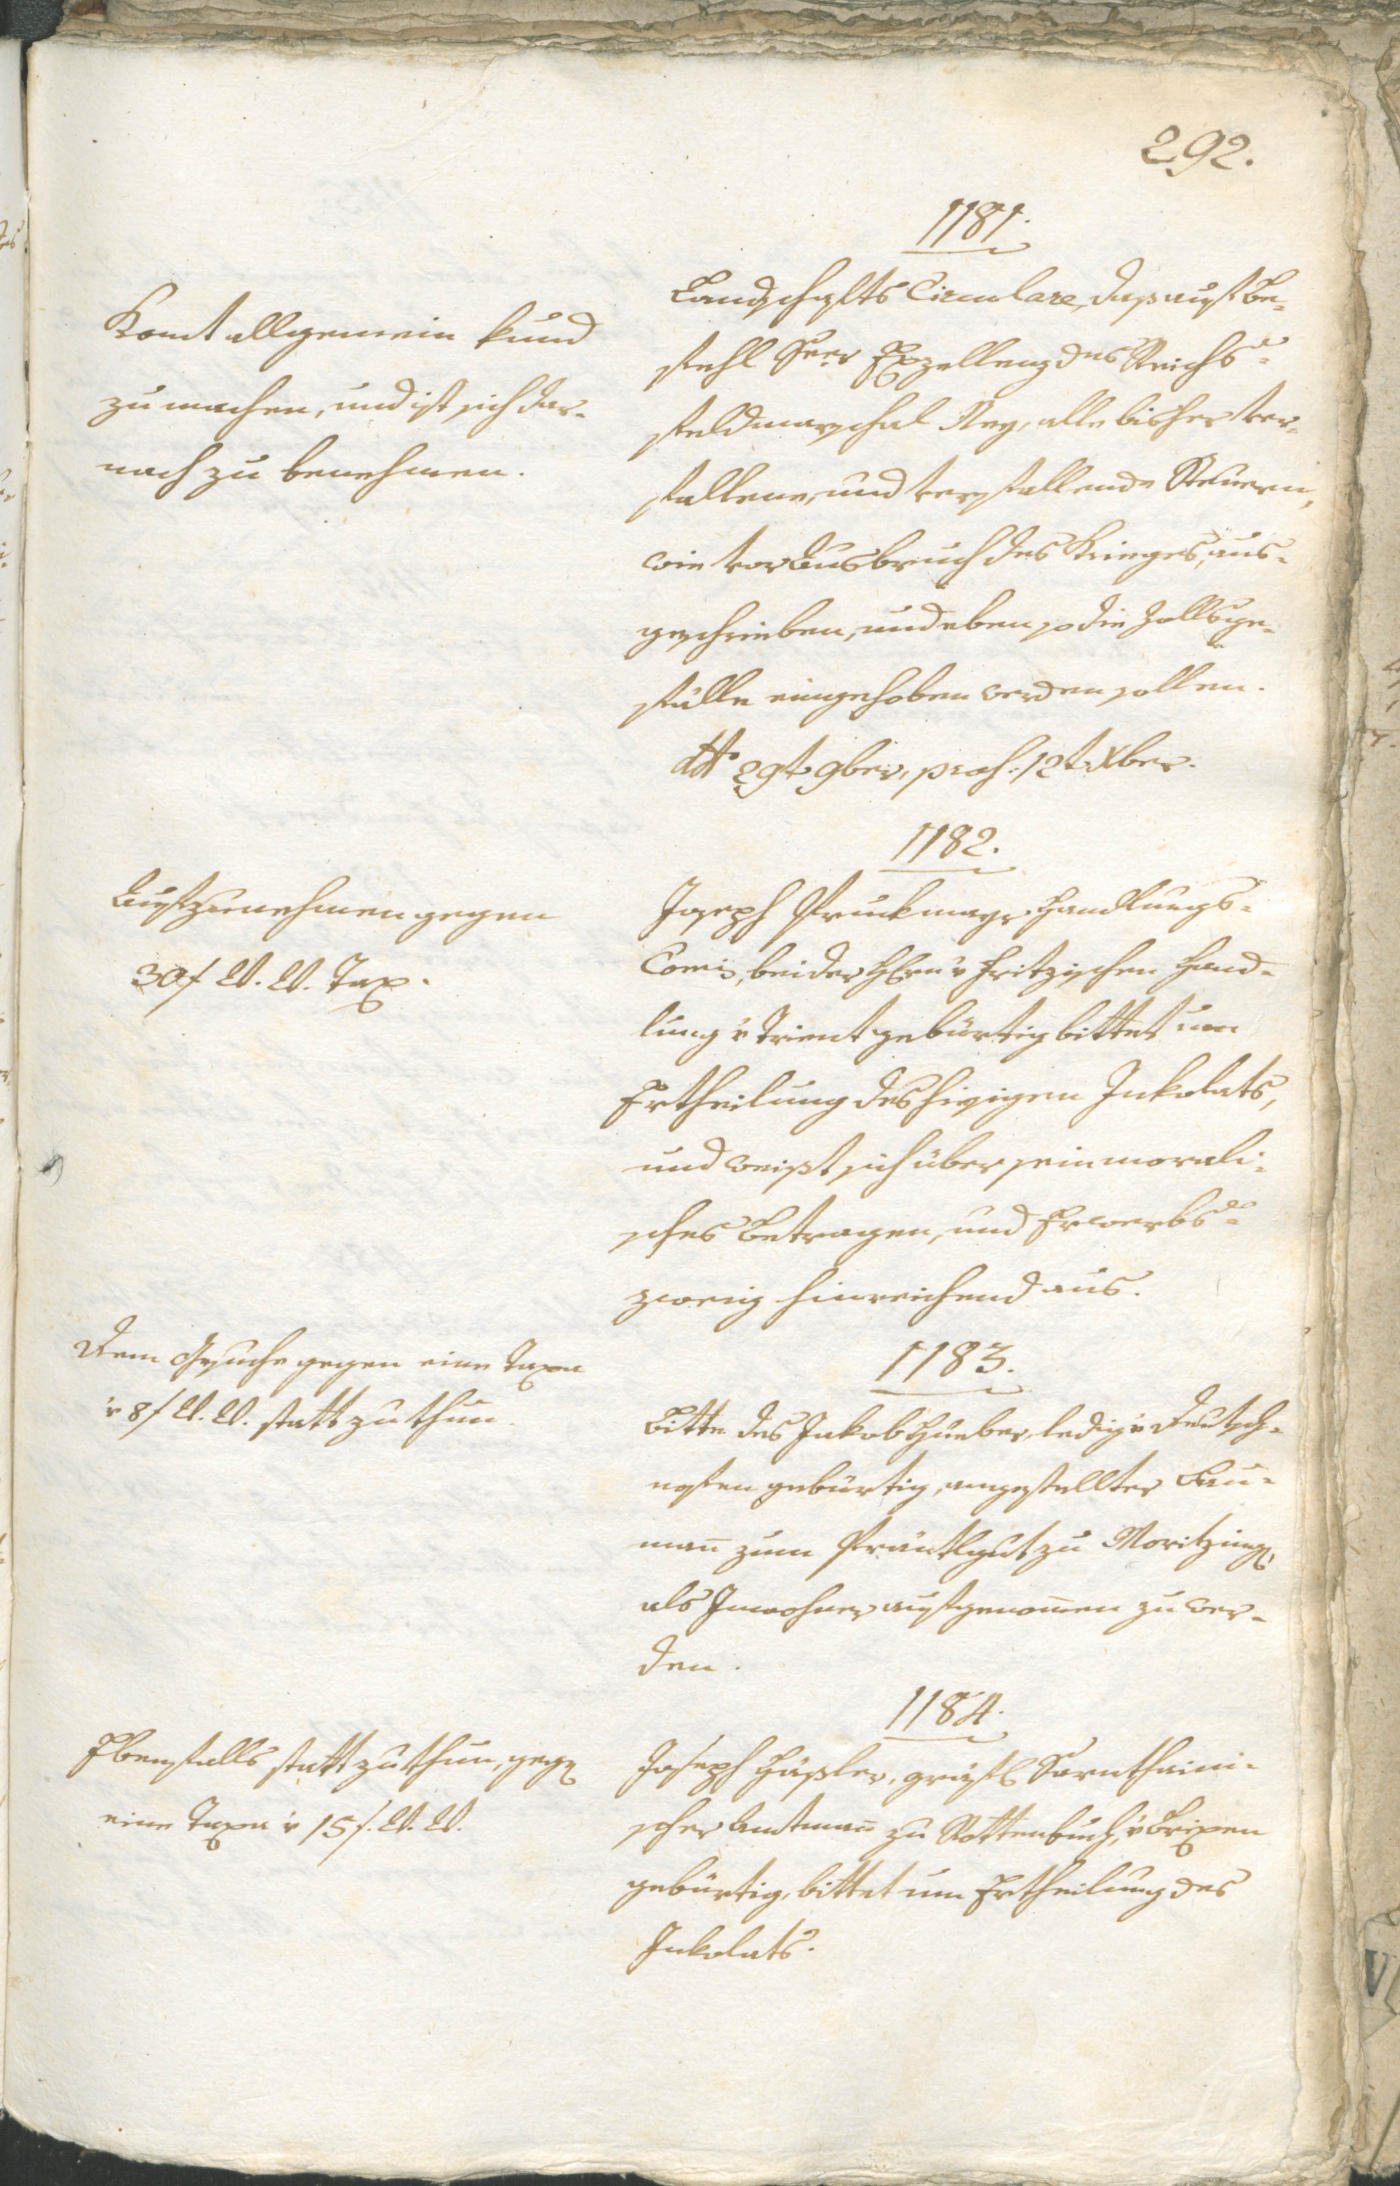 292.
1181.
Landschafts Circulare, daß auf Be-
fehl Seer Exzellenz des Reichs-
feldmarschal Ney, alle bisher ver-
fallene, und verfallende Steuern,
wie vor Ausbruch des Krieges, aus-
geschrieben, und eben so die Zollsge-
fälle eingehoben werden sollen.
ddto 29t 9ber, praes. 12t Xber.
Komt allgemein kund
zu machen, und ist sich dar-
nach zu benehmen.
1182.
Joseph Pruckmayr, Handlungs-
Comis, bei der Hhrn v Fritzischen Hand-
lung v Trient gebürtig bittet um
Ertheilung des hiesigen Inkolats,
und weißt sich über sein morali-
sches Betragen, und Erwerbs-
zweig hinreichend aus.
Aufzunehmen gegen
30 f W. W. Tax.
1183.
Bitte des Jakob Hueber, ledig v Deutsch-
nofen gebürtig, angestellter Bau-
man̄ zum Präutlgut zu Moritzing,
als Inwohner aufgenom̄en zu wer-
den.
Dem Gesuche gegen eine Taxe
v 8 f W. W. statt zu thun.
1184.
Joseph Häßler, gräfl Sarntheini-
scher Amtman̄ zu Rottenbuch, v Brixen
gebürtig, bittet um Ertheilung des
Inkolats.
Ebenfalls statt zu thun, gegen
eine Taxe v 15 f. W. W.